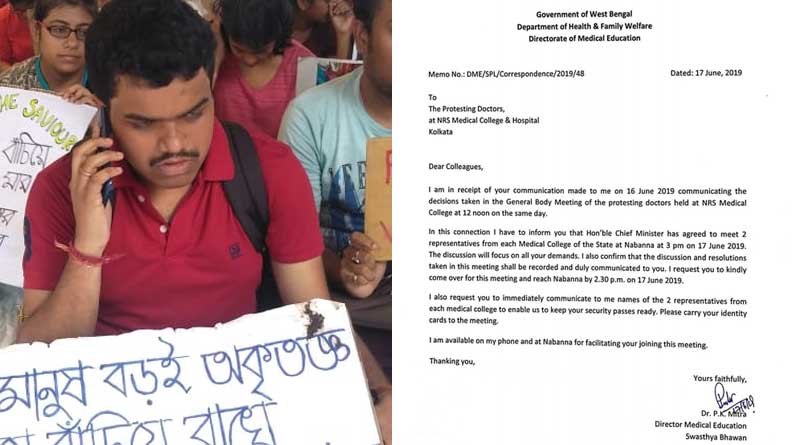 THE SAVIOUR
বাঁচিয়ে
মার
মানুষ বড়ই অকৃতজ্ঞ
বাঁচিয়ে রাখে
Government of West Bengal
Department of Health & Family Welfare
Directorate of Medical Education
Memo No.: DME/SPL/Correspondence/2019/48 Dated: 17 June, 2019
To
The Protesting Doctors,
at NRS Medical College & Hospital
Kolkata
Dear Colleagues,
I am in receipt of your communication made to me on 16 June 2019 communicating the
decisions taken in the General Body Meeting of the protesting doctors held at NRS Medical
College at 12 noon on the same day.
In this connection I have to inform you that Hon'ble Chief Minister has agreed to meet 2
representatives from each Medical College of the State at Nabanna at 3 pm on 17 June 2019.
The discussion will focus on all your demands. I also confirm that the discussion and resolutions
taken in this meeting shall be recorded and duly communicated to you. I request you to kindly
come over for this meeting and reach Nabanna by 2.30 p.m. on 17 June 2019.
I also request you to immediately communicate to me names of the 2 representatives from
each medical college to enable us to keep your security passes ready. Please carry your identity
cards to the meeting.
I am available on my phone and at Nabanna for facilitating your joining this meeting.
Thanking you,
Yours faithfully,
Dr. P.K. Mitra
Director Medical Education
Swasthya Bhawan